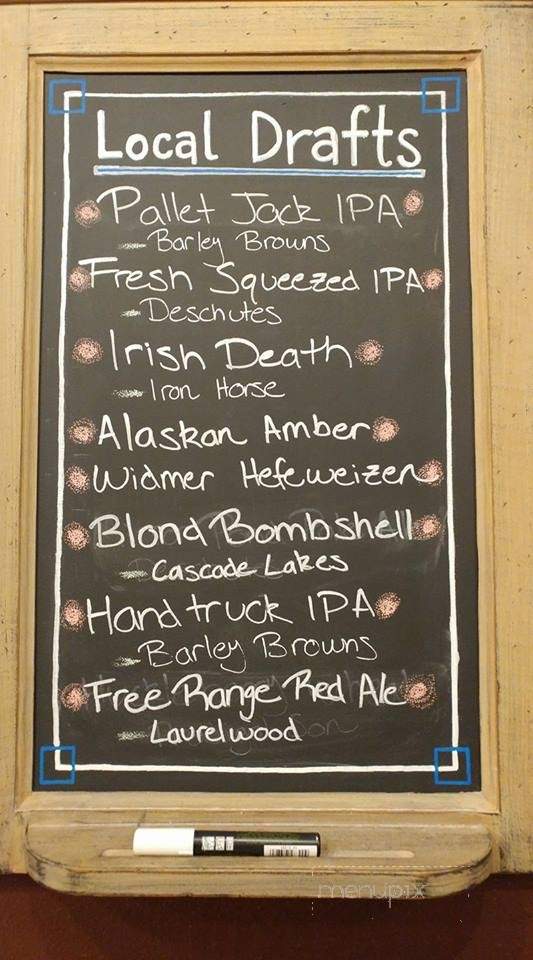 Local Drafts
Pallet Jack IPA
- Barley Browns
Fresh Squeezed IPA
- Deschutes
Irish Death
- Iron Horse
Alaskan Amber
Widmer Hefeweizen
Blond Bombshell
- Cascade Lakes
Handtruck IPA
- Barley Browns
Free Range Red Ale
- Laurelwood
menupix